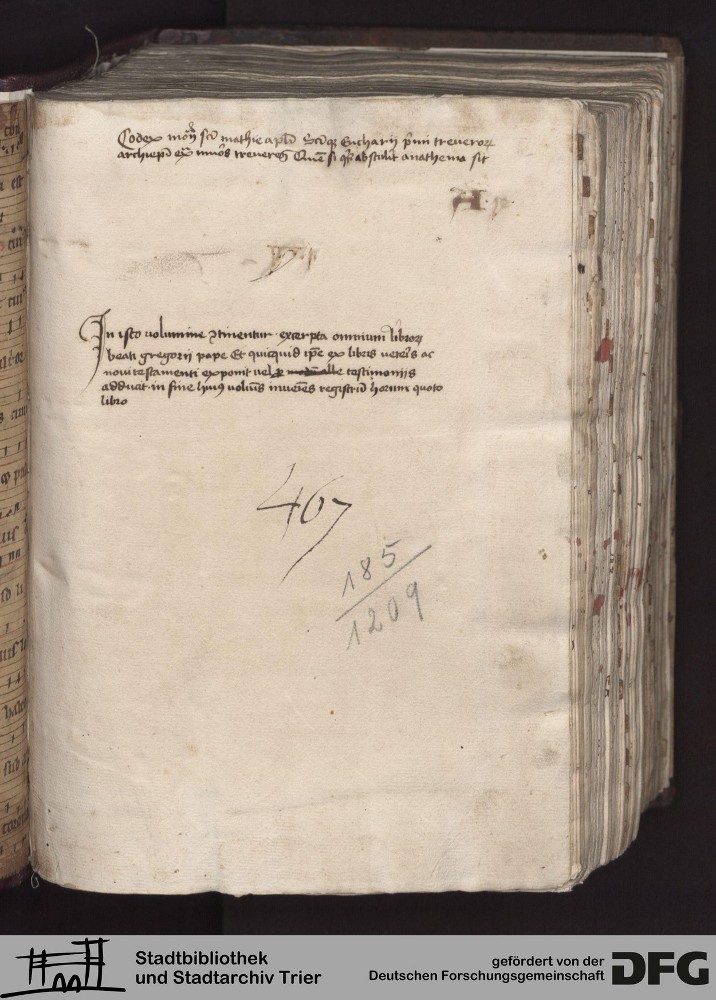 Codex mon sci mathie apli Sciq Eucharii pmi treveror
archiepi ex muros treveren Que si qs abstulit anathema sit
A
In isto volumine 9tinentur excerpta omnium libror
beati gregorii pape Et quicquid ipe ex libris veteris ac
novi testamenti exponit vel testimoniis
adducit in fine huius voluis invenies registru horum quoto
libro
467
185
1209
Stadtbibliothek
und Stadtarchiv Trier
gefördert von der
Deutschen Forschungsgemeinschaft
DFG